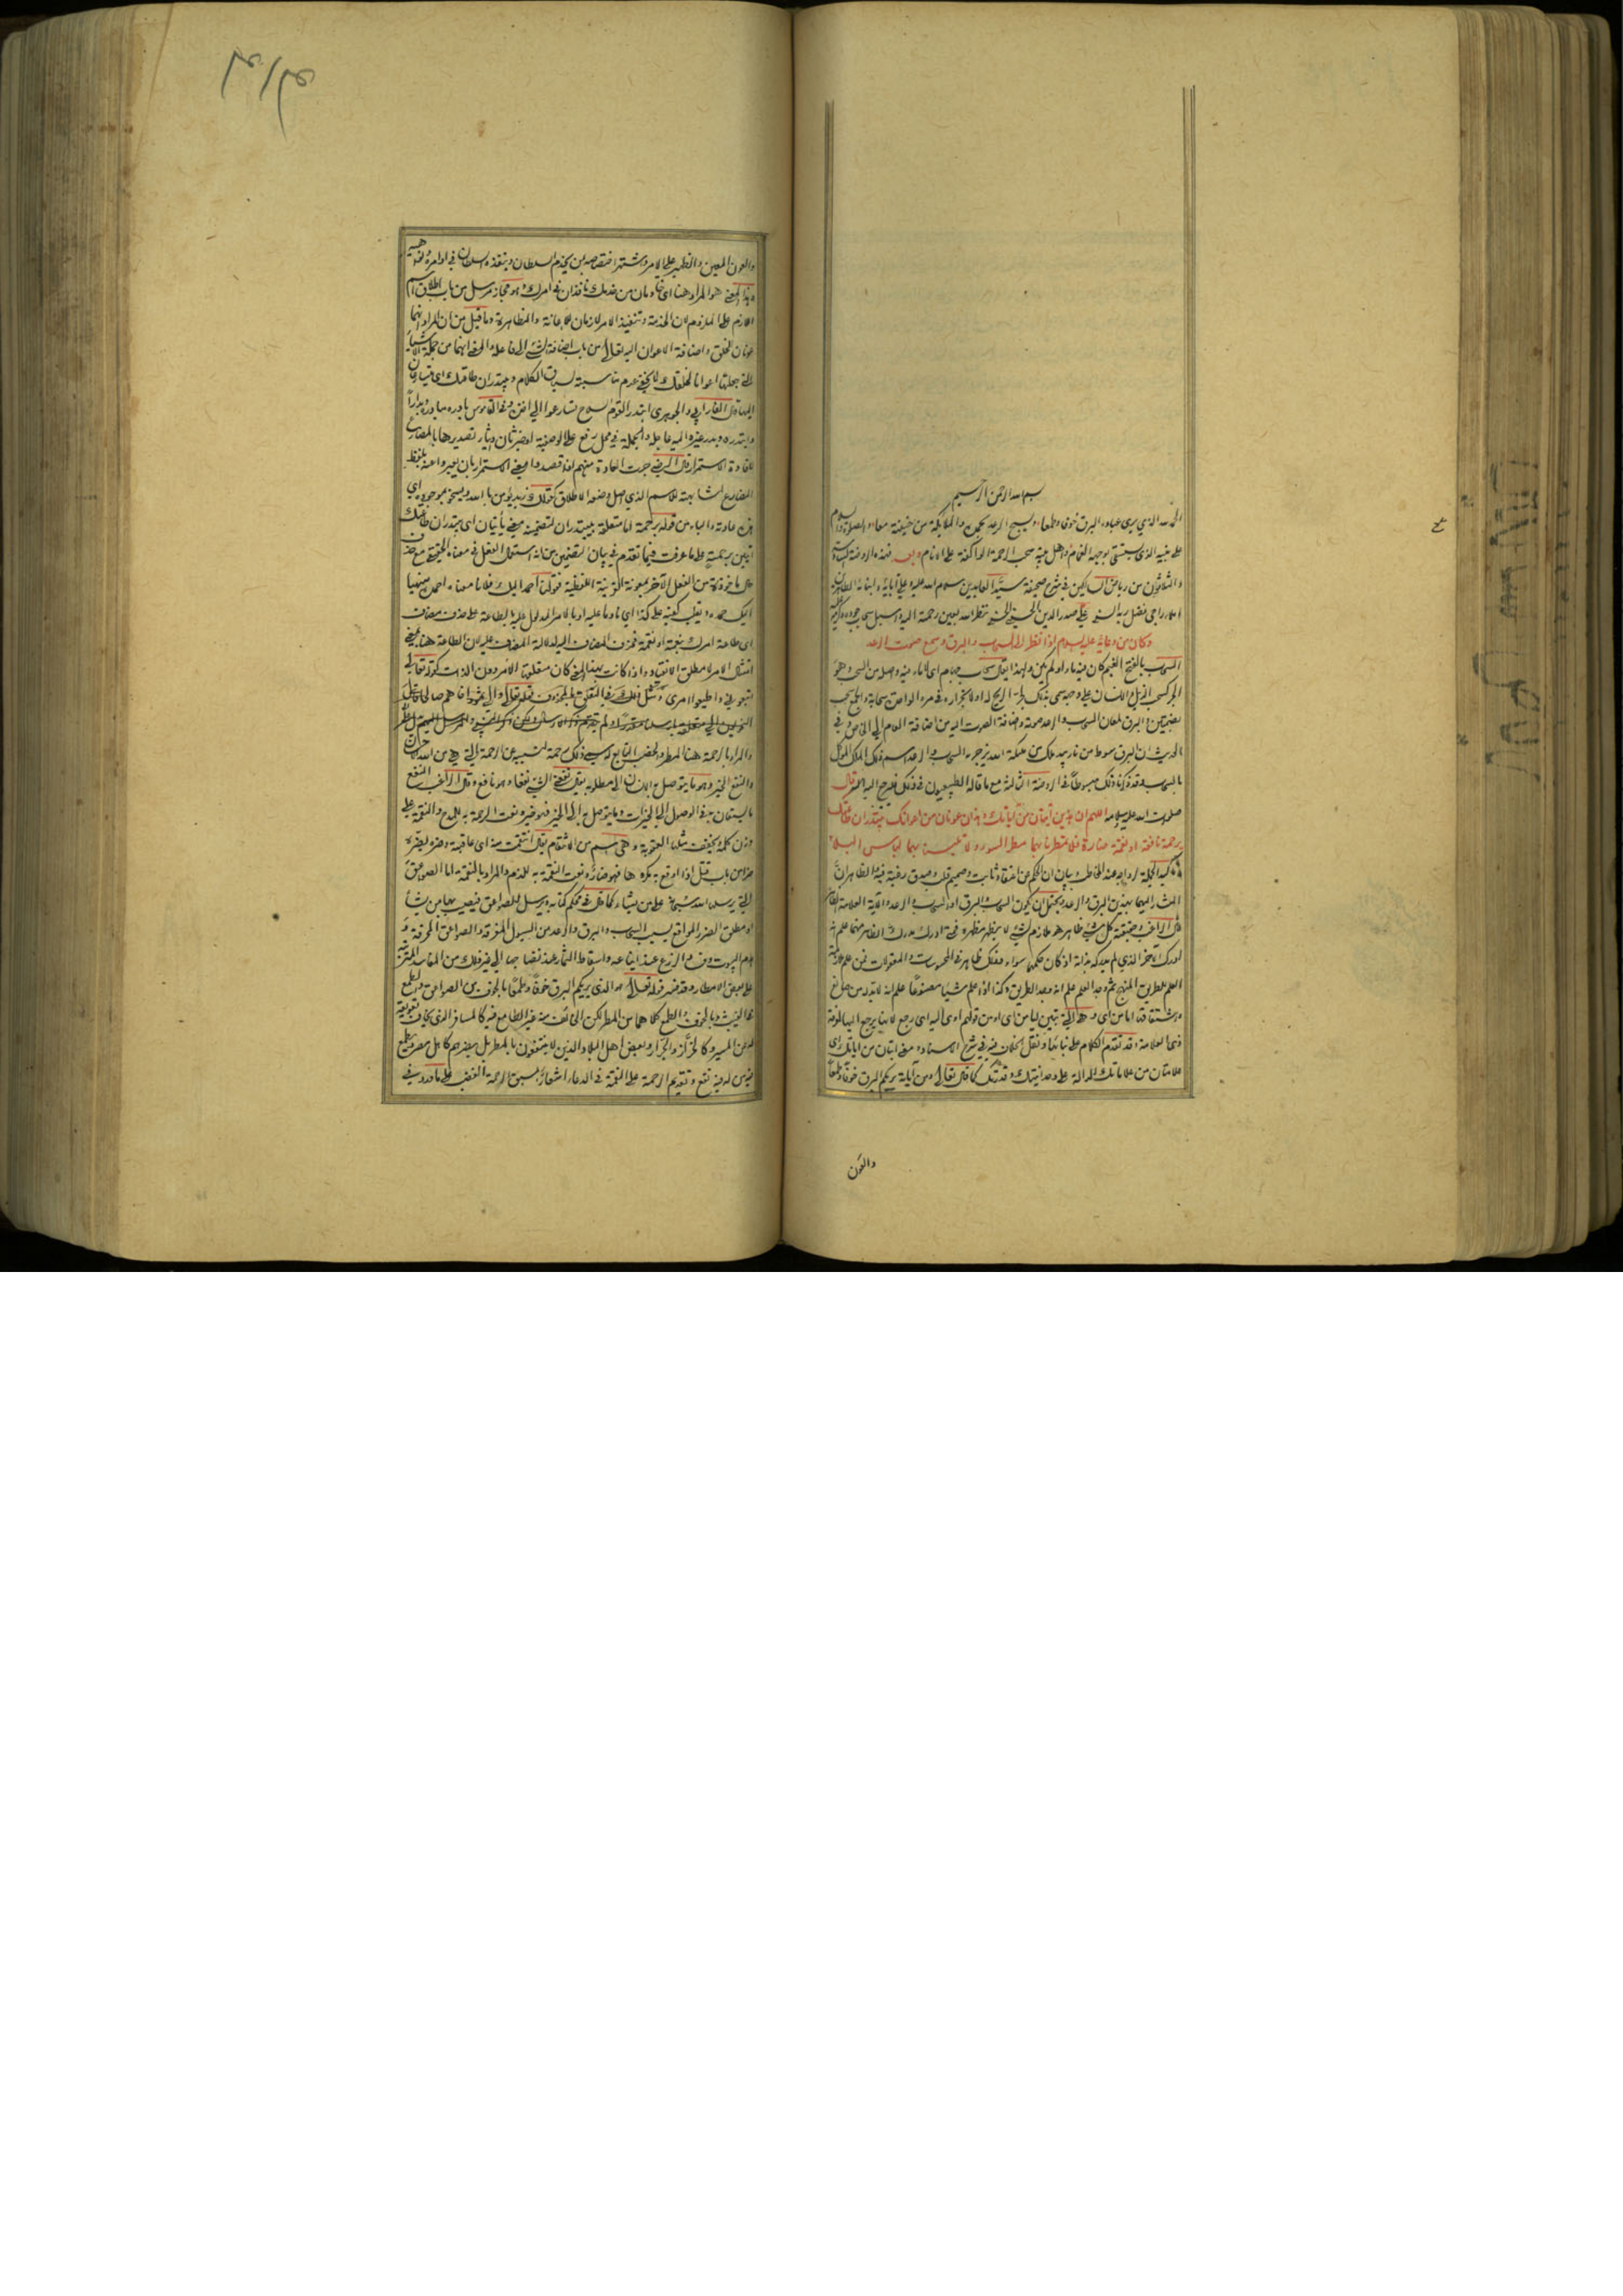 بسم الله الرحمن الرحيم
الحمد لله الذي يري عباده البرق خوفا وطمعا ويسبح الرعد بحمده والملائكة من خيفته معا والصلوة والسلام
على نبيه الذي يستسقى بوجهه الغمام وأهل بيته سحب الرحمة الواكفة على الانام وبعد فهذه الروضة السادسة
والثلاثون من رياض السالكين في شرح صحيفة سيد العابدين سلام الله عليه وعلى آبائه وابنائه الطاهرين
املاء راجي فضل ربه السني علي صدر الدين الحسيني الحسني نظر الله بعين رحمته اليه واسبل سحاب جوده وكرمه عليه
وكان من دعائه عليه السلام اذا نظر الى السحاب والبرق وسمع صوت الرعد
السحاب بالفتح الغيم كان فيه ماء او لم يكن ولهذا يقال سحاب جهام اي لا ماء فيه واصله من السحب وهو
الجر كسحب الذيل والانسان على وجهه سمي بذلك لجر الريح له او لانجراره في مره الواحدة سحابة والجمع سحب
بضمتين والبرق لمعان السحاب والرعد صوته واضافة الصوت اليه من اضافة العام الى الخاص وفي
الحديث ان البرق سوط من نار بيد ملك من ملائكة الله يزجر به السحاب والرعد اسم ذلك الملك الموكل
بالسحاب وقد ذكرنا ذلك مبسوطا في الروضة الثالثة مع ما قاله الطبيعيون في ذلك فليرجع اليه قال
صلوات الله عليه اللهم ان هذين آيتان من آياتك وهذين عونان من اعوانك يبتدران طاعتك
برحمة نافعة او نقمة ضارة فلا تمطرنا بهما مطر السوء ولا تلبسنا بهما لباس البلاء
المشار اليهما بهذين البرق والرعد ويحتمل ان يكون السحاب والبرق او السحاب والرعد والآية العلامة الظاهرة
قال الراغب وحقيقته كل شيء ظاهر هو ملازم لشيء لا يظهر ظهوره فمتى ادرك مدرك الظاهر منهما علم انه
ادرك الآخر الذي لم يدركه بذاته اذ كان حكمهما سواء وذلك ظاهر في المحسوسات والمعقولات فمن علم ملازمة
العلم للطريق المنهج ثم وجد العلم علم انه وجد الطريق وكذا اذا علم شيئا مصنوعا علم انه لا بد له من صانع
واشتقاقها اما من اي وهي التي تبين ايا من اي او من قولهم اوى اليه اي رجع لانها يرجع اليها لمعرفة
ذي العلامة وقد تقدم الكلام على بنائها ونقل الخلاف فيه في شرح الاسناد ومعنى آيتان من آياتك اي
علامتان من علاماتك الدالة على وحدانيتك وقدرتك كما قال تعالى ومن آياته يريكم البرق خوفا وطمعا
والعون
والعون المعين والظهير على الامر واشتهر اختصاصه بمن يخدم السلطان وينفذه السلطان في اوامره ونواهيه
وهذا المعنى هو المراد هنا اي خادمان من خدمك نافذان في امرك وهو مجاز مرسل من باب اطلاق اسم
اللازم على الملزوم لان الخدمة وتنفيذ الامر لازمان للاعانة والمظاهرة وما قيل من ان المراد انهما
عونان للخلق واضافة الاعوان اليه تعالى من باب اضافة الشيء الى فاعله والمعنى انهما من جملة الاشياء
التي جعلتها اعوانا لخلقك لا يخفى عدم مناسبته لسياق الكلام ويبتدران طاعتك اي يتسارعان
اليها قال الفارابي والجوهري ابتدر القوم السلاح تسارعوا الى اخذه وفي القاموس بادره مبادرة وبدارا
وابتدره وبدر غيره اليه عاجله والجملة في محل رفع على الوصفية او خبر ثان وايثار تصديرها بالمضارع
لافادة الاستمرار قال الرضي جرت العادة منهم اذا قصدوا معنى الاستمرار بان يعبروا عنه بلفظ
المضارع لمشابهته للاسم الذي اصل وضعه للاطلاق كقولك زيد يؤمن بالله ويسخو بموجوده اي
هذه عادته والباء من قوله برحمة اما متعلقة بيبتدران لتضمينه معنى يأتيان اي يبتدران طاعتك
آتيين برحمة على ما عرفت فيما تقدم في بيان التضمين من انه استعمال الفعل في معناه الحقيقي مع حذف
حال مأخوذة من الفعل الآخر بمعونة القرينة اللفظية فقولنا احمد اليك فلانا معناه احمده منهيا
اليك حمده ويقلب كفيه على كذا اي نادما عليه او بالامر المدلول عليه بالطاعة على حذف مضاف
اي طاعة امرك برحمة او نقمة فحذف المضاف اليه لدلالة المضاف عليه لان الطاعة هنا بمعنى
امتثال الامر لا مطلق الانقياد واذا كانت بهذا المعنى كان متعلقها الامر دون الذات كقوله تعالى
اتبعوني واطيعوا امري ومثل ذلك في التعلق بالمحذوف قوله تعالى والى ثمود اخاهم صالحا
والمراد بالرحمة هنا المطر والخصب التابع له سمي ذلك رحمة لتسببه عن الرحمة التي هي من الله احسان
والنفع الخير وهو ما يتوصل به الانسان الى مطلوبه يقال نفعني الشيء نفعا وهو نافع وقال الراغب النفع
ما يستعان به في الوصول الى الخيرات وما يتوصل به الى الخير فهو خير ونعت الرحمة به للمدح والنقمة على
وزن كلمة وتخفف مثلها العقوبة وهي اسم من الانتقام يقال انتقمت منه اي عاقبته وضره يضره
ضرا من باب قتل اذا اوقع به مكروها فهو ضار ونعت النقمة به للذم والمراد بالنقمة اما الصواعق
التي يرسلها الله سبحانه على من يشاء كما قال في محكم كتابه ويرسل الصواعق فيصيب بها من يشاء
او مطلق الضرر الواقع بسبب السحاب والبرق والرعد من السيول المغرقة والصواعق المحرقة و
هدم البيوت وفساد الزرع عند ايناعه واسقاط الثمار عند نضاجها الى غير ذلك من المفاسد المترتبة
على بعض الامطار وقد فسر قوله تعالى هو الذي يريكم البرق خوفا وطمعا بالخوف من الصواعق والطمع
في الغيث وبالخوف والطمع كلاهما من المطر لكن الخائف منه غير الطامع فيه كالمسافر الذي يخاف تعويقه
له عن المسير وكالخزاز والجزار وبعض اهل البلاد الذين لا ينتفعون بالمطر بل يضرهم كاهل مصر ويطمع
فيه من له فيه نفع وتقديم الرحمة على النقمة في الدعاء اشعار بسبق الرحمة الغضب على ما ورد في